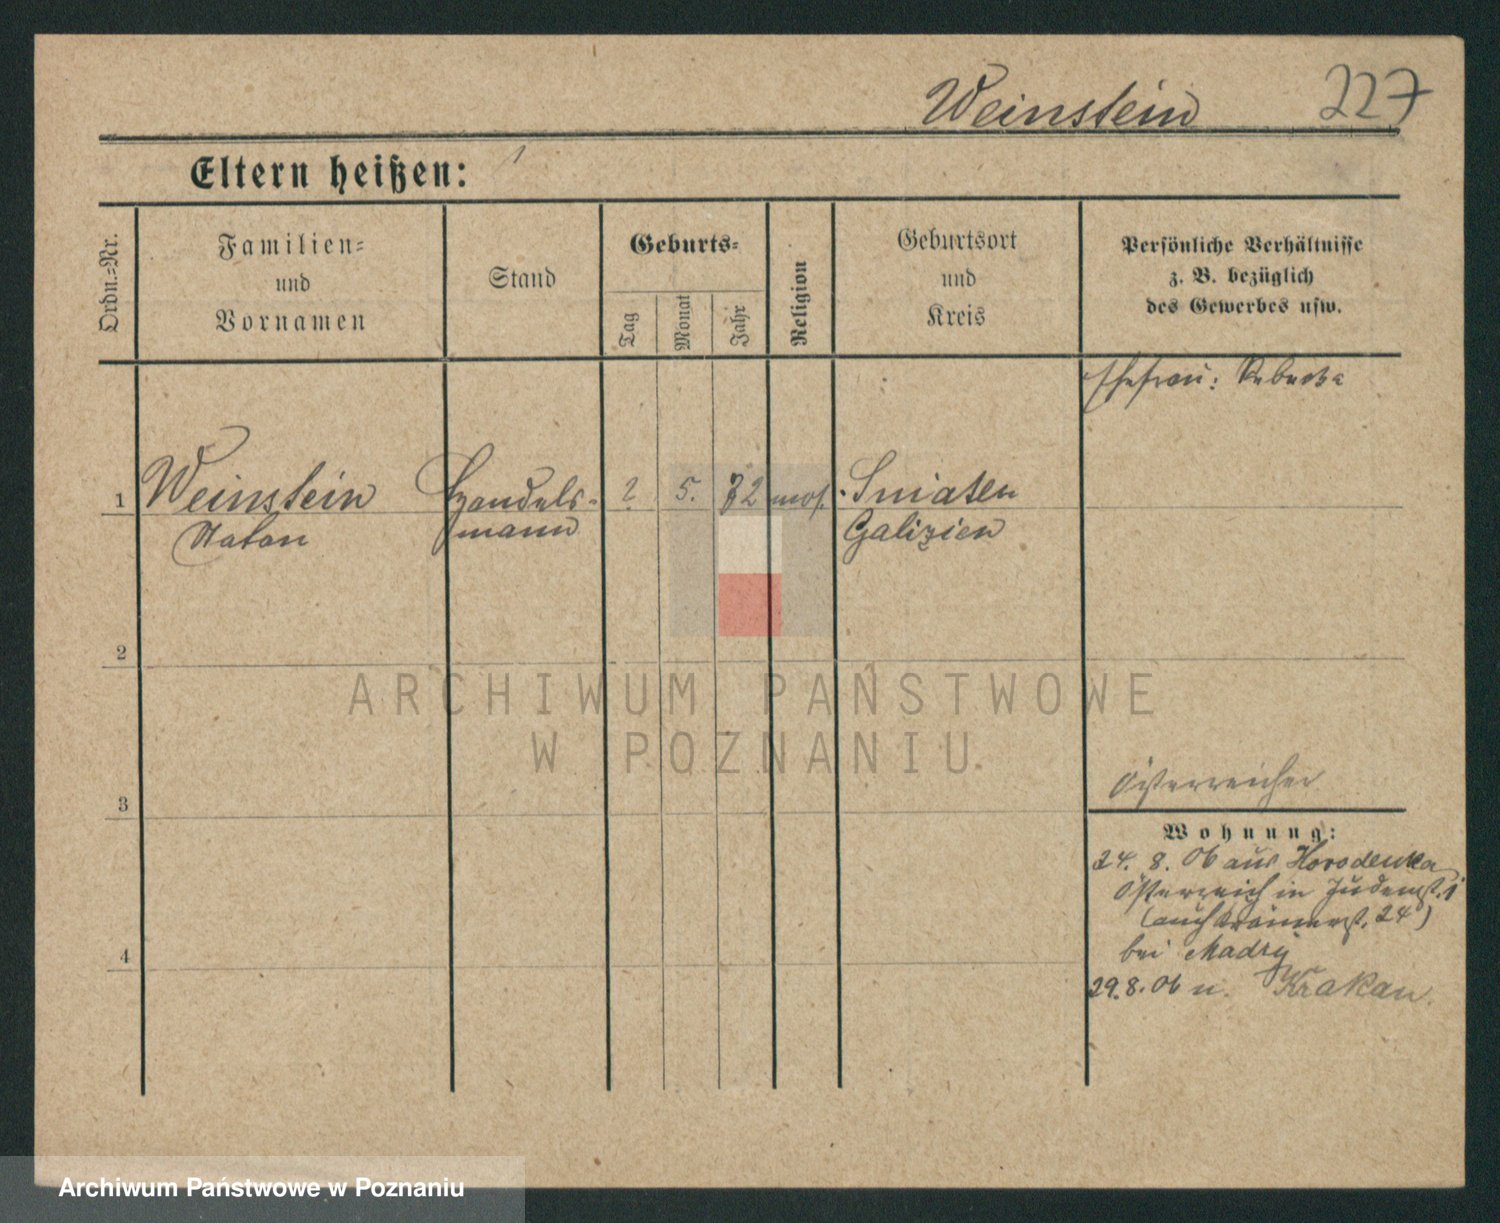 Weinstein 227
Eltern heißen:
Ordn.=Nr.
Familien=
und
Vornamen
Stand
Geburts=
Tag
Monat
Jahr
Religion
Geburtsort
und
Kreis
Persönliche Verhältnisse
z. B. bezüglich
des Gewerbes usw.
Ehefrau: Rebecka
1 Weinstein Handels- ? 5. 72 mos. Sniaten
Natan mann Galizien
2
ARCHIWUM PAŃSTWOWE
W POZNANIU
Österreicher
3
Wohnung:
24. 8. 06 aus Horodenka
Österreich in Judenst. 1
(auch Krämerst. 24)
bei Madry
4
29.8.06 n. Krakau.
Archiwum Państwowe w Poznaniu